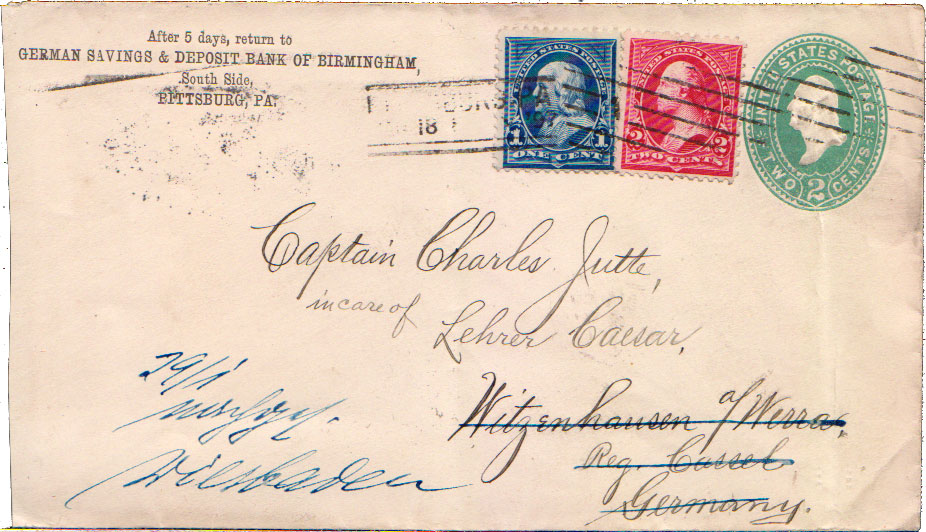 After 5 days, return to
GERMAN SAVINGS & DEPOSIT BANK OF BIRMINGHAM,
South Side,
PITTSBURG, PA.
18
UNITED STATES POSTAGE
1 1
ONE CENT
UNITED STATES POSTAGE
2 2
TWO CENTS
UNITED STATES POSTAGE
TWO 2 CENTS
Captain Charles Jutte,
in care of
Lehrer Caesar,
Witzenhausen a/Werra,
Reg. Cassel
Germany.
29/1
Wiesbaden